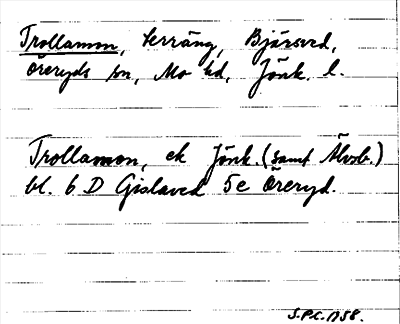 Trollamon, terräng, Bjärsved,
Öreryds sn, Mo hd, Jönk. l.
Trollamon, ek Jönk. (samt Älvsb.)
bl. 6 D Gislaved 5e Öreryd.
S.P.C. 1958.